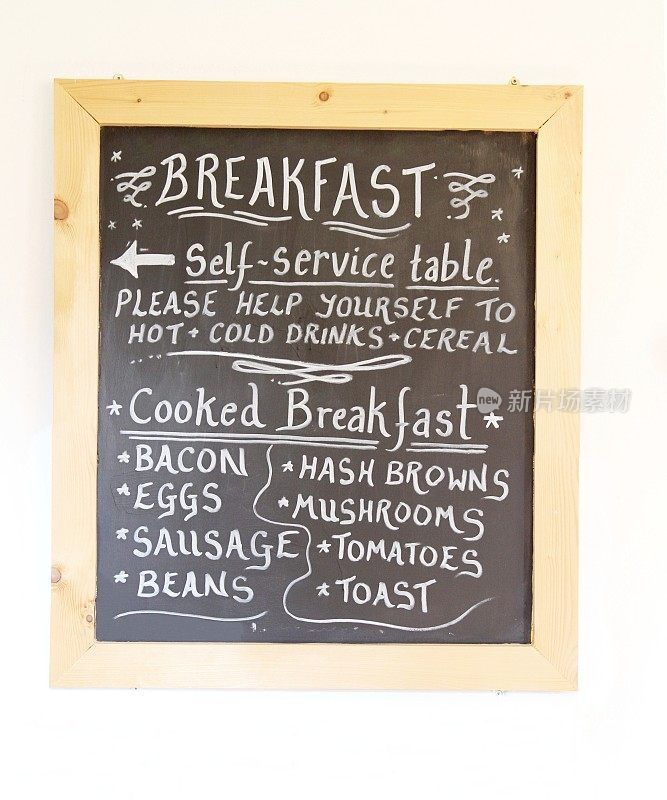 BREAKFAST
Self-service table.
PLEASE HELP YOURSELF TO
HOT + COLD DRINKS + CEREAL
* Cooked Breakfast *
* BACON
* EGGS
* SAUSAGE
* BEANS
* HASH BROWNS
* MUSHROOMS
* TOMATOES
* TOAST
new 新片场素材